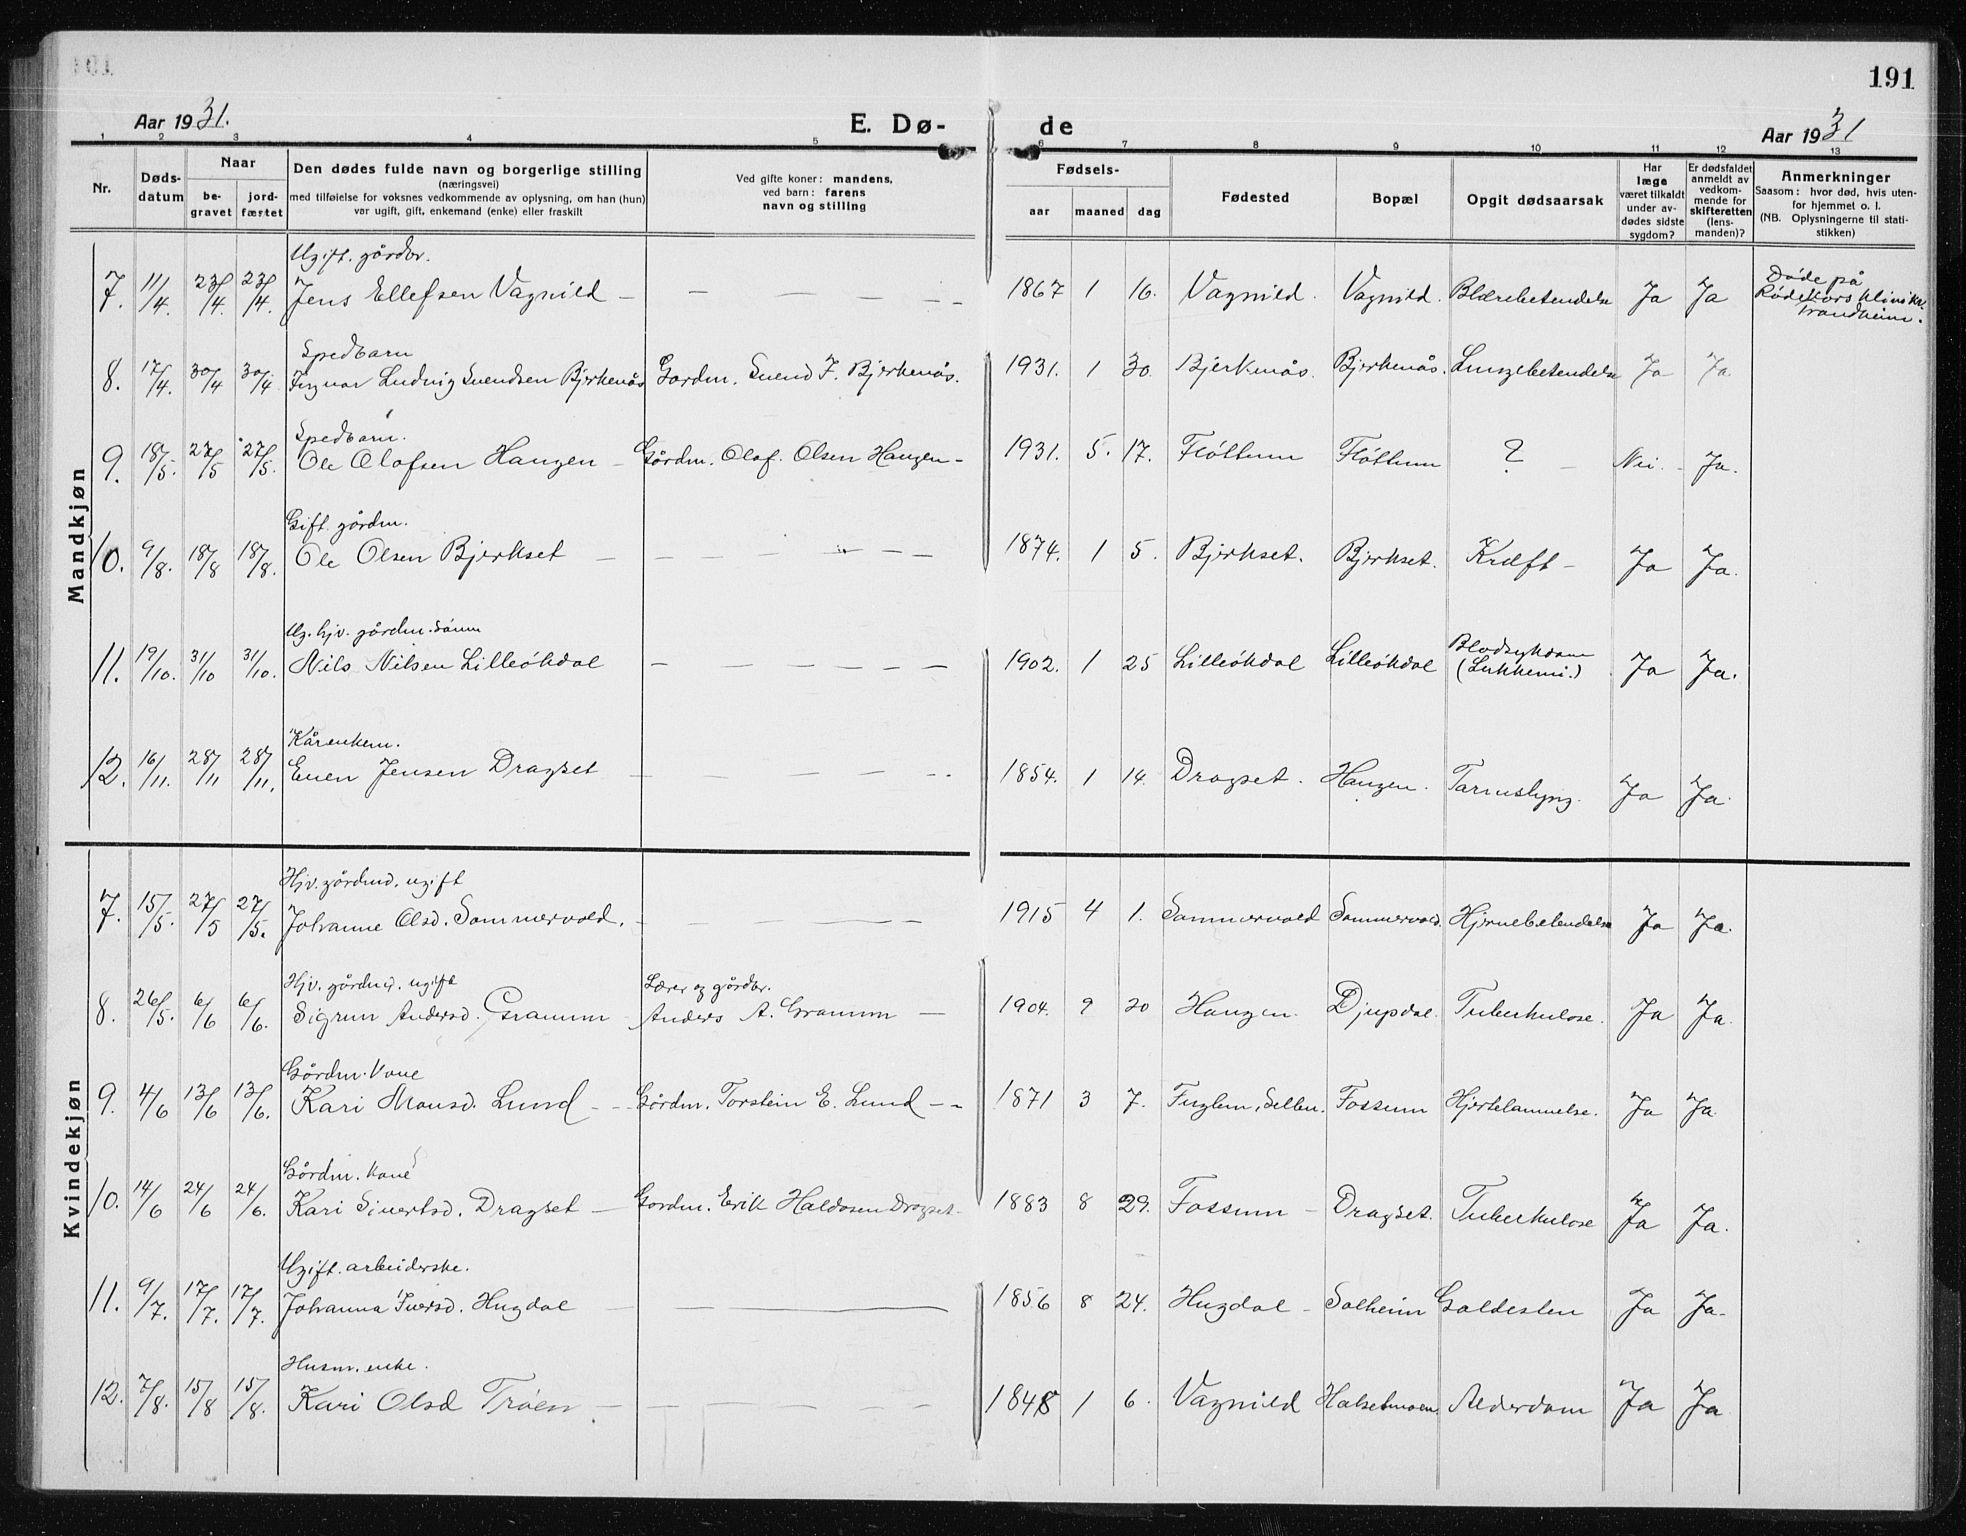 191
Aar 1931.
E. Dø- de
Aar 1931
1 2 3 4 5 6 7 8 9 10 11 12 13
Nr.
Døds-
datum
Naar
be-
gravet
jord-
fæstet
Den dødes fulde navn og borgerlige stilling
(næringsvei)
med tilføielse for voksnes vedkommende av oplysning, om han (hun)
var ugift, gift, enkemand (enke) eller fraskilt
Ved gifte koner: mandens,
ved barn: farens
navn og stilling
Fødsels-
aar maaned dag
Fødested
Bopæl
Opgit dødsaarsak
Har
læge
været tilkaldt
under av-
dødes sidste
sygdom?
Er dødsfaldet
anmeldt av
vedkom-
mende for
skifteretten
(lens-
manden)?
Anmerkninger
Saasom: hvor død, hvis uten-
for hjemmet o. l.
(NB. Oplysningerne til stati-
stikken)
Mandkjøn
Ugift. gårdbr.
7. 11/4. 23/4. 23/4. Jens Ellefsen Vagnild – – – – – – 1867 1 16. Vagnild. Vagnild. Blærebetendelse Ja Ja Døde på
Rødekors klinikk
Trondheim.
Spedbarn
8. 17/4. 30/4 30/4. Ingvar Ludvig Svendsen Bjerkenås Gårdm. Svend J. Bjerkenås. 1931. 1 30. Bjerkenås. Bjerkenås. Lungebetendelse Ja Ja
Spedbarn.
9. 18/5. 27/5 27/5. Ole Olafsen Haugen – Gårdm. Olaf Olsen Haugen – 1931. 5. 17. Fløttum Fløttum ? – Nei. – Ja.
Gift gårdm.
10. 9/8. 18/8 18/8. Ole Olsen Bjerkset – – – – – – 1874. 1 5. Bjerkset. Bjerkset. Kræft – Ja Ja.
Ug. hjv. gårdm. sønn
11. 19/10. 31/10 31/10. Nils Nilsen Lilleøkdal – – – – – – 1902. 1 25 Lilleøkdal Lilleøkdal Blodsykdom
(Lukkemi.) Ja Ja.
Kårenkem.
12. 16/11. 28/11 28/11. Even Jensen Dragset – – – – – 1854. 1 14. Dragset. Haugen. Tarmslyng. Ja Ja.
Kvindekjøn
Hjv. gårdmd. ugift
7. 15/5. 27/5 27/5. Johanne Olsd. Sommervold. – – – – – 1915 4 1. Sommervold Sommervold. Hjernebetendelse Ja Ja.
Hjv. gårdmd. ugift Lærer og gårdbr.
8. 26/5. 6/6 6/6. Sigrun Andersd. Gramm Anders A. Gramm – 1904. 9 20 Haugen. Djupdal. Tuberkulose. Ja Ja.
Gårdm. kone
9. 4/6 13/6 13/6. Kari Monsd. Lund – – Gårdm. Torstein E. Lund – – 1871 3 7. Fuglem, Selbu. Fossum Hjertelammelse. Ja Ja.
Gårdm. kone
10. 14/6 24/6 24/6. Kari Sivertsd. Dragset – Gårdm. Erik Haldosen Dragset – 1883 8 29. Fossum – Dragset. Tuberkulose Ja Ja.
Ugift. arbeiderske.
11. 9/7. 17/7. 17/7. Johanna Iversd. Hugdal – – – 1856 8 24. Hugdal – Solheim Galdesten Ja Ja.
Husm. enke.
12. 7/8. 15/8 15/8. Kari Olsd Trøen – – – – – 1848 1 6. Vagnild Halsetmoen. Alderdom Ja Ja